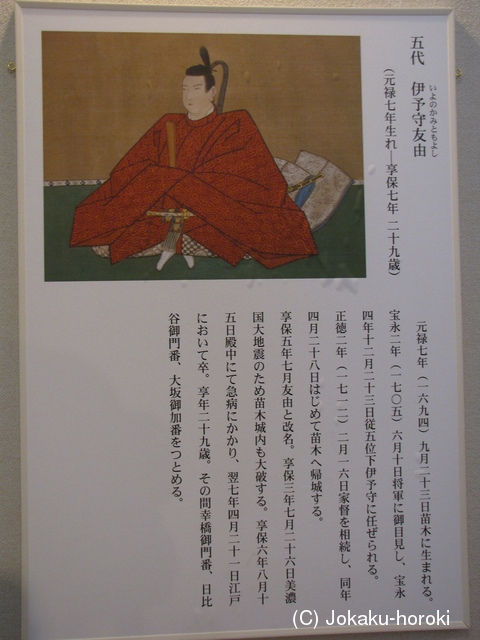 五代　伊予守友由
いよのかみともよし
（元禄七年生れ―享保七年 二十九歳）
元禄七年（一六九四）九月二十三日苗木に生まれる。
宝永二年（一七〇五）六月十日将軍に御目見し、宝永
四年十二月二十三日従五位下伊予守に任ぜられる。
正徳二年（一七一二）二月一六日家督を相続し、同年
四月二十八日はじめて苗木へ帰城する。
享保五年七月友由と改名。享保三年七月二十六日美濃
国大地震のため苗木城内も大破する。享保六年八月十
五日殿中にて急病にかかり、翌七年四月二十一日江戸
において卒。享年二十九歳。その間幸橋御門番、日比
谷御門番、大坂御加番をつとめる。
(C) Jokaku-horoki